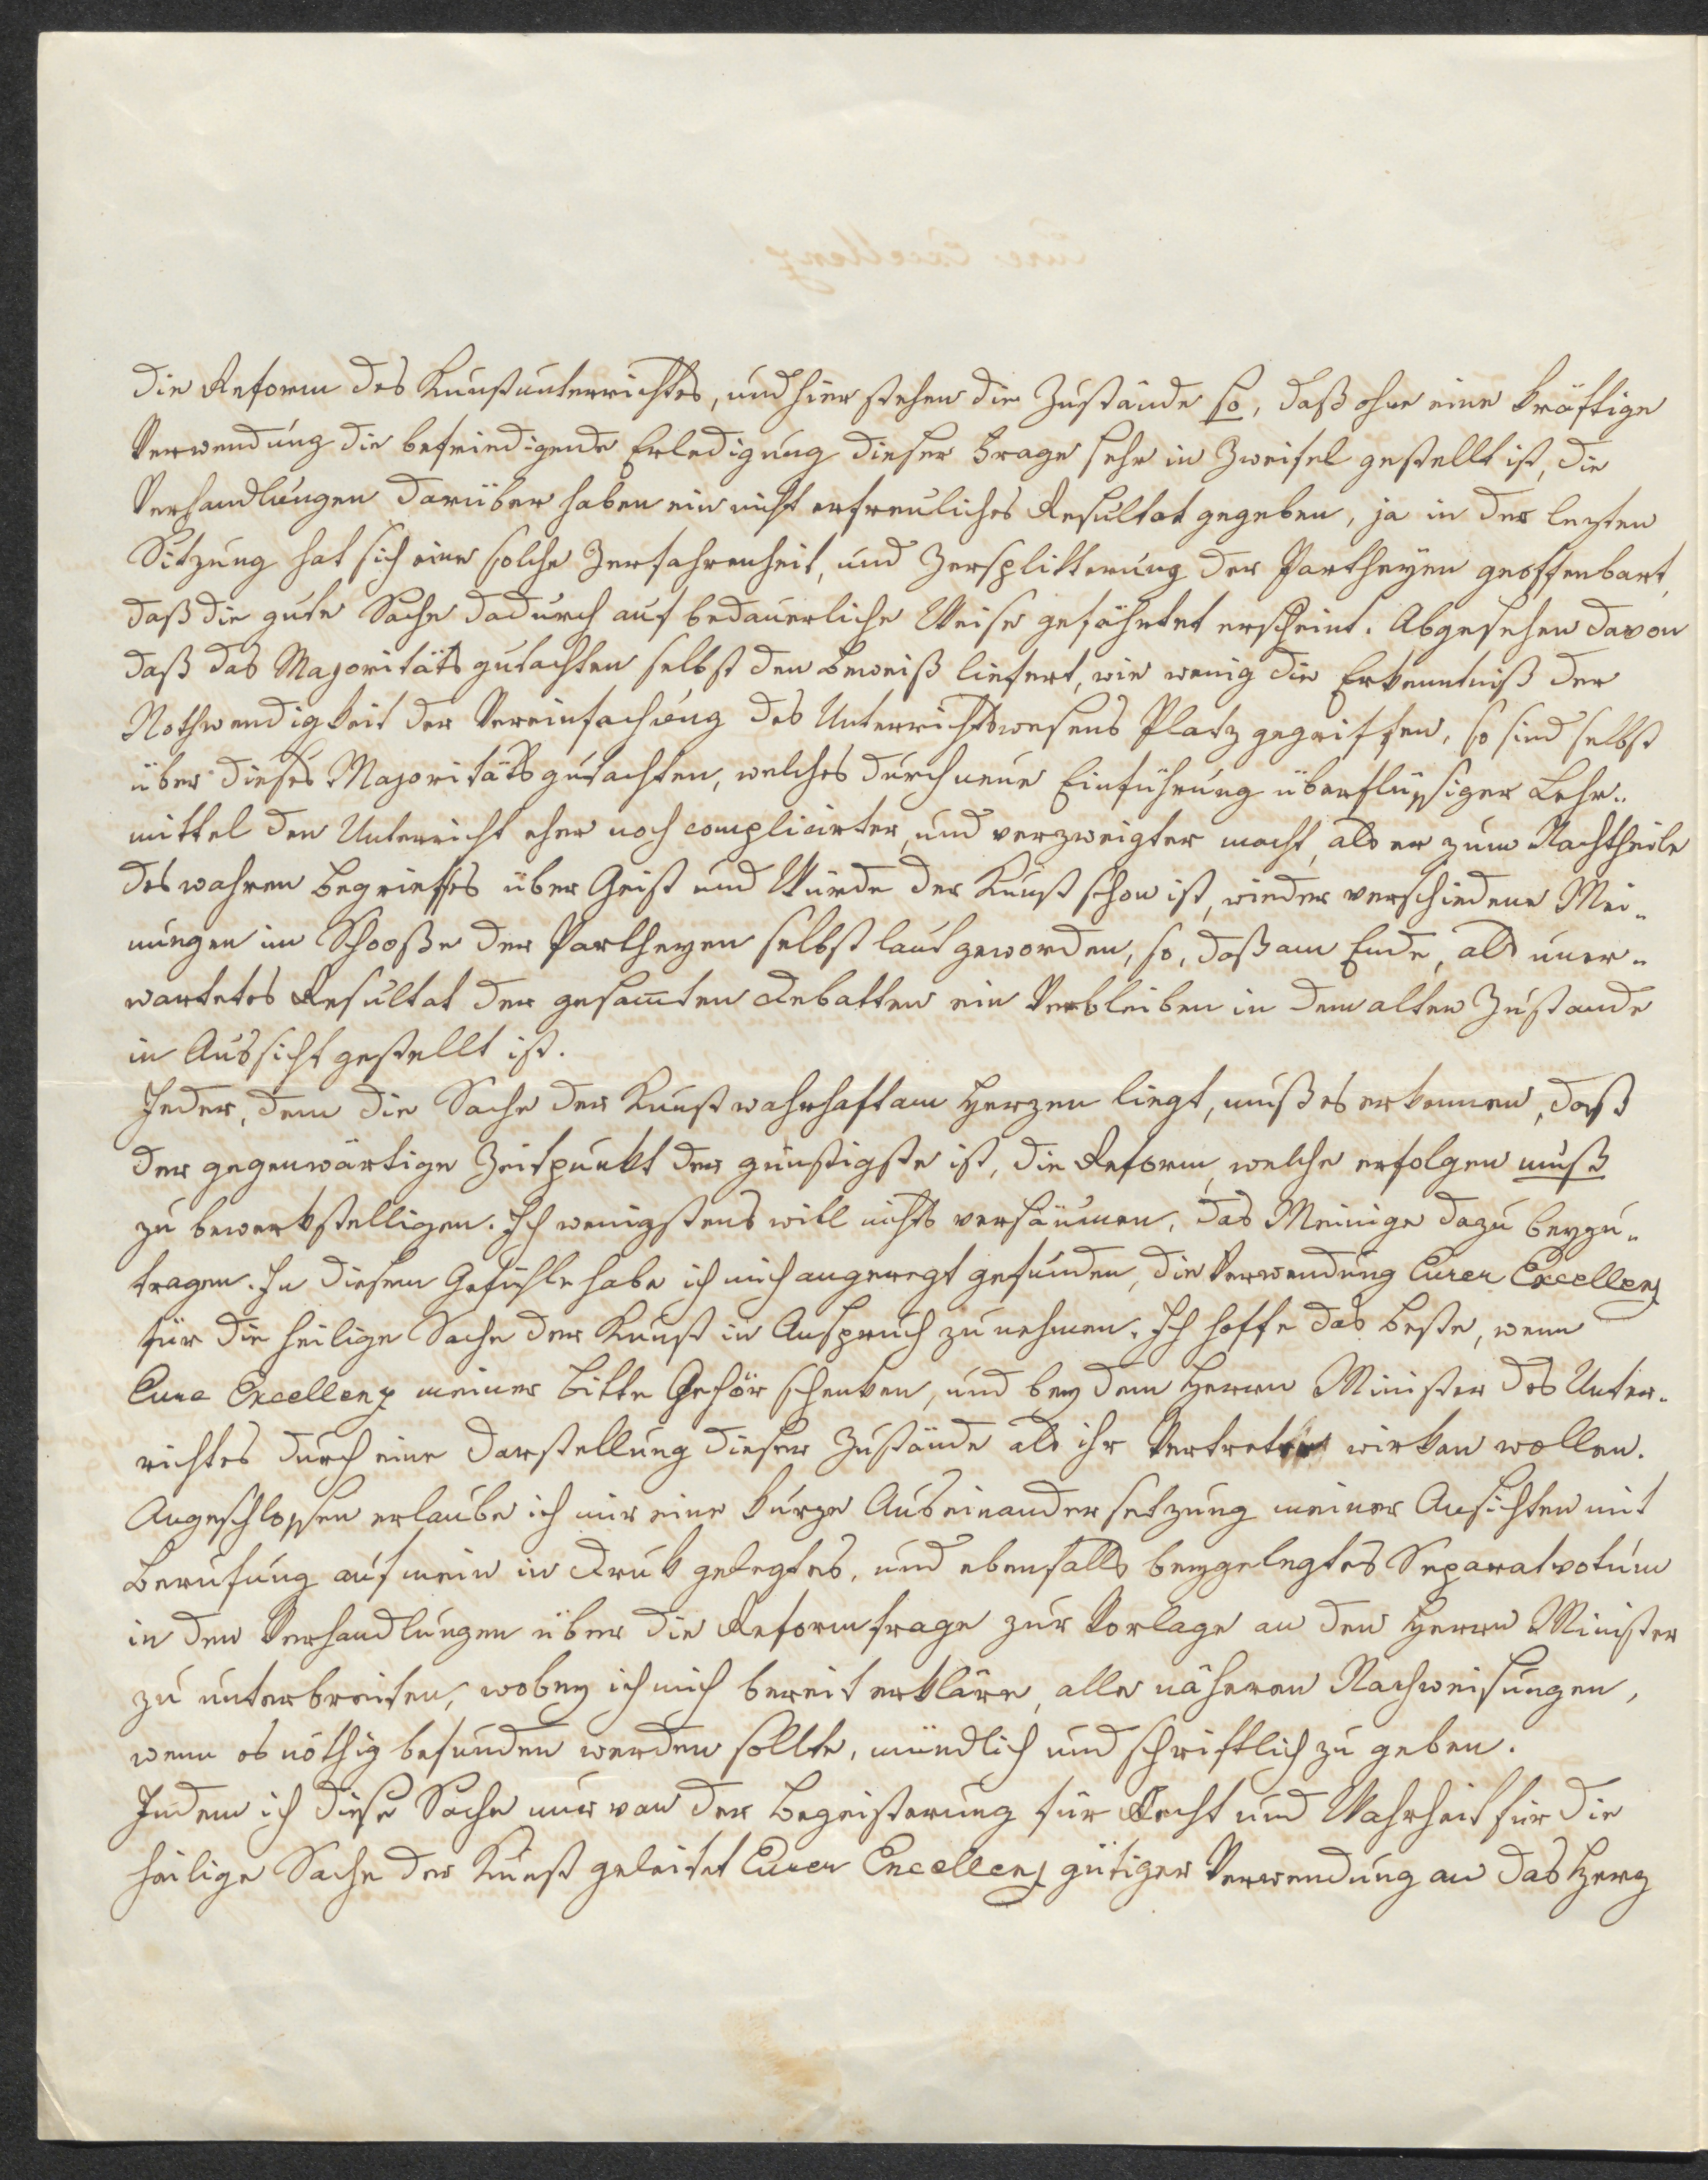 die Reform des Kunstunterrichtes, und hier stehen die Zustände so, daß ohne eine kräftige
Verwendung die befriedigende Erledigung dieser Frage sehr in Zweifel gestellt ist, die
Verhandlungen darüber haben ein nicht erfreuliches Resultat gegeben, ja in der lezten
Sitzung hat sich eine solche Zerfahrenheit, und Zersplitterung der Partheyen geoffenbart,
daß die gute Sache dadurch auf bedauerliche Weise gefährtet erscheint. Abgesehen davon
daß das Majoritätsgutachten selbst den Beweiß liefert, wie wenig die Erkenntniß der
Nothwendigkeit der Vereinfachung des Unterrichtswesens Platz gegriffen, so sind selbst
über dieses Majoritätsgutachten, welches durch neue Einführung überflüssiger Lehr-
mittel den Unterricht eher noch complicirter, und verzweigter macht, als er zum Nachtheile
des wahren Begriffes über Geist und Würde der Kunst schon ist, wieder verschiedene Mei-
nungen im Schooße der Partheyen selbst laut geworden, so, daß am Ende, als uner-
wartetes Resultat der gesam̅ten Debatten ein Verbleiben in dem alten Zustande
in Aussicht gestellt ist.
Jeder, dem die Sache der Kunst wahrhaft am Herzen liegt, muß es erkennen, daß
der gegenwärtige Zeitpunkt der günstigste ist, die Reform, welche erfolgen muß
zu bewerkstelligen. Ich wenigstens will nichts versäumen, das Meinige dazu beyzu-
tragen. In diesem Gefühle habe ich mich angeregt gefunden, die Verwendung Eurer Excellenz
für die heilige Sache der Kunst in Anspruch zu nehmen. Ich hoffe das Beste, wenn
Eure Excellenz meiner Bitte Gehör schenken, und bey dem Herrn Minister des Unter-
richtes durch eine Darstellung dieser Zustände als ihr Vertreter wirken wollen.
Angeschlossen erlaube ich mir eine kurze Auseinandersetzung meiner Ansichten mit
Berufung auf mein in Druk gelegtes, und ebenfalls beygelegtes Separatvotum
in den Verhandlungen über die Reformfrage zur Vorlage an den Herrn Minister
zu unterbreiten, wobey ich mich bereit erkläre, alle näheren Nachweisungen,
wenn es nöthig befunden werden sollte, mündlich und schriftlich zu geben.
Indem ich diese Sache nur von der Begeisterung für Recht und Wahrheit für die
heilige Sache der Kunst geleitet Eurer Excellenz gütiger Verwendung an das Herz